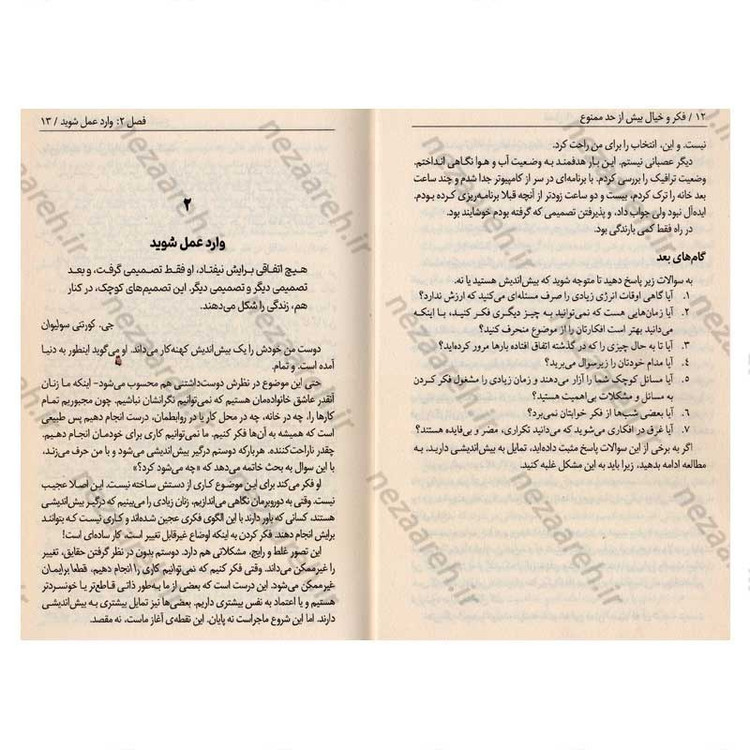 ۱۲ / فکر و خیال بیش از حد ممنوع
نیست. و این، انتخاب را برای من راحت کرد.
دیگر عصبانی نیستم. این بار هدفمند به وضعیت آب و هوا نگاهی انداختم.
وضعیت ترافیک را بررسی کردم. با برنامه‌ای در سر از کامپیوتر جدا شدم و چند ساعت
بعد خانه را ترک کردم، بیست و دو ساعت زودتر از آنچه قبلا برنامه‌ریزی کرده بودم.
ایده‌آل نبود ولی جواب داد، و پذیرفتن تصمیمی که گرفته بودم خوشایند بود.
در راه فقط کمی بارندگی بود.
گام‌های بعد
به سوالات زیر پاسخ دهید تا متوجه شوید که بیش‌اندیش هستید یا نه.
۱. آیا گاهی اوقات انرژی زیادی را صرف مسئله‌ای می‌کنید که ارزش ندارد؟
۲. آیا زمان‌هایی هست که نمی‌توانید به چیز دیگری فکر کنید، با اینکه
می‌دانید بهتر است افکارتان را از موضوع منحرف کنید؟
۳. آیا تا به حال چیزی را که در گذشته اتفاق افتاده بارها مرور کرده‌اید؟
۴. آیا مدام خودتان را زیرسوال می‌برید؟
۵. آیا مسائل کوچک شما را آزار می‌دهند و زمان زیادی را مشغول فکر کردن
به مسائل و مشکلات بی‌اهمیت هستید؟
۶. آیا بعضی شب‌ها از فکر خوابتان نمی‌برد؟
۷. آیا غرق در افکاری می‌شوید که می‌دانید تکراری، مضر و بی‌فایده هستند؟
اگر به برخی از این سوالات پاسخ مثبت داده‌اید، تمایل به بیش‌اندیشی دارید. به
مطالعه ادامه بدهید، زیرا باید به این مشکل غلبه کنید.
فصل ۲: وارد عمل شوید / ۱۳
۲
وارد عمل شوید
هیچ اتفاقی برایش نیفتاد، او فقط تصمیمی گرفت، و بعد
تصمیمی دیگر و تصمیمی دیگر. این تصمیم‌های کوچک، در کنار
هم، زندگی را شکل می‌دهند.
جی. کورتنی سولیوان
دوست من خودش را یک بیش‌اندیش کهنه‌کار می‌داند. او می‌گوید اینطور به دنیا
آمده است. و تمام.
حتی این موضوع در نظرش دوست‌داشتنی هم محسوب می‌شود- اینکه ما زنان
آنقدر عاشق خانواده‌مان هستیم که نمی‌توانیم نگرانشان نباشیم. چون مجبوریم تمام
کارها را، چه در خانه، چه در محل کار یا در روابطمان، درست انجام دهیم پس طبیعی
است که همیشه به آن‌ها فکر کنیم. ما نمی‌توانیم کاری برای خودمان انجام دهیم.
چقدر ناراحت‌کننده. هربار که دوستم درگیر بیش‌اندیشی می‌شود و با من حرف می‌زند،
با این سوال به بحث خاتمه می‌دهد که «چه می‌شود کرد؟»
او فکر می‌کند برای این موضوع کاری از دستش ساخته نیست. این اصلا عجیب
نیست. وقتی به دوروبرمان نگاهی می‌اندازیم، زنان زیادی را می‌بینیم که درگیر بیش‌اندیشی
هستند، کسانی که باور دارند با این الگوی فکری عجین شده‌اند و کاری نیست که بتوانند
برایش انجام دهند. فکر کردن به اینکه اوضاع غیرقابل تغییر است، کار ساده‌ای است!
این تصور غلط و رایج، مشکلاتی هم دارد. دوستم بدون در نظر گرفتن حقایق، تغییر
را غیرممکن می‌داند. وقتی فکر کنیم که نمی‌توانیم کاری را انجام دهیم، قطعا برایمان
غیرممکن می‌شود. این درست است که بعضی از ما به‌طور ذاتی قاطع‌تر یا خونسردتر
هستیم و یا اعتماد به نفس بیشتری داریم. بعضی‌ها نیز تمایل بیشتری به بیش‌اندیشی
دارند. اما این شروع ماجراست نه پایان. این نقطه‌ی آغاز ماست، نه مقصد.
nezaareh.ir
nezaareh.ir
nezaareh.ir
nezaareh.ir
nezaareh.ir
nezaareh.ir